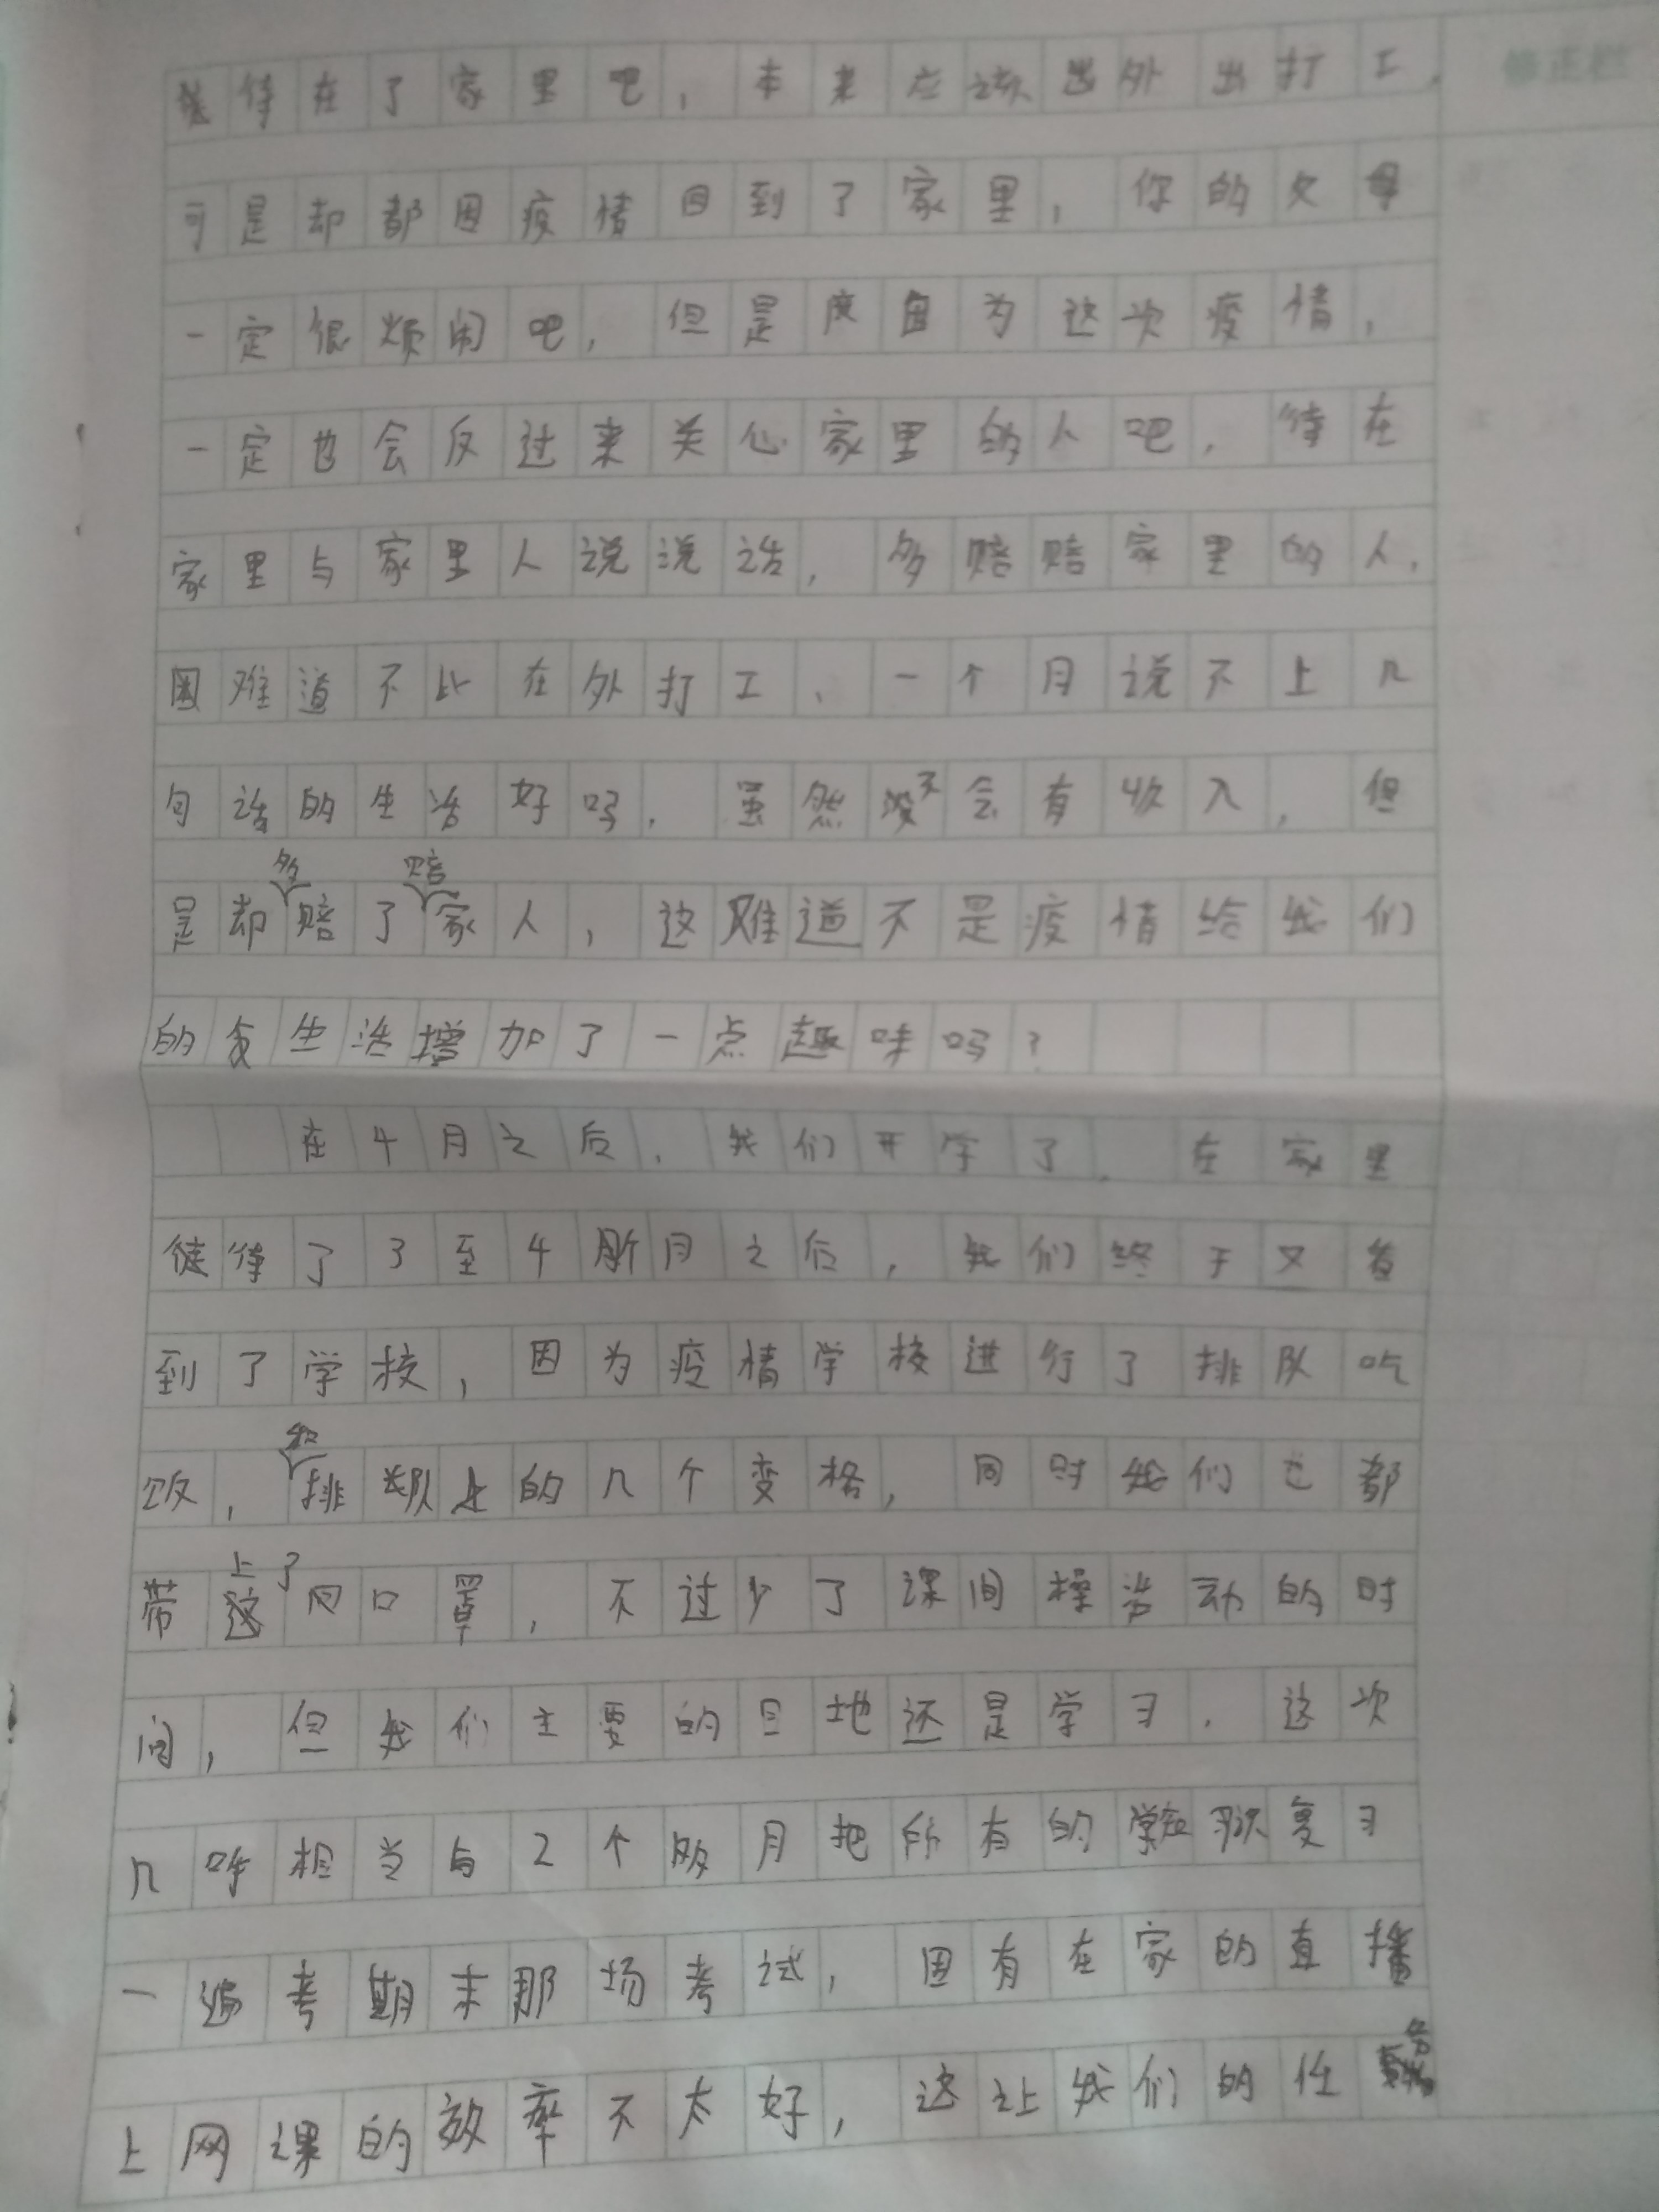 待在了家里吧，本来应该出外出打工，
可是却都因疫情回到了家里，你的父母
一定很烦闷吧，但是因为这次疫情，
一定也会反过来关心家里的人吧，待在
家里与家里人说说话，多赔赔家里的人，
难道不比在外打工、一个月说不上几
句话的生活好吗，虽然不会有收入，但
是却多赔了赔家人，这难道不是疫情给我们
的生活增加了一点趣味吗？
在4月之后，我们开学了，在家里
待了3至4个月之后，我们终于又
到了学校，因为疫情学校进行了排队吃
饭，和排队的几个变格，同时我们也都
带上了口罩，不过少了课间操活动的时
间，但我们主要的目地还是学习，这次
几呼相当与2个多月把所有的知识复习
一遍考期末那场考试，因有在家的直播
上网课的效率不太好，这让我们的任务